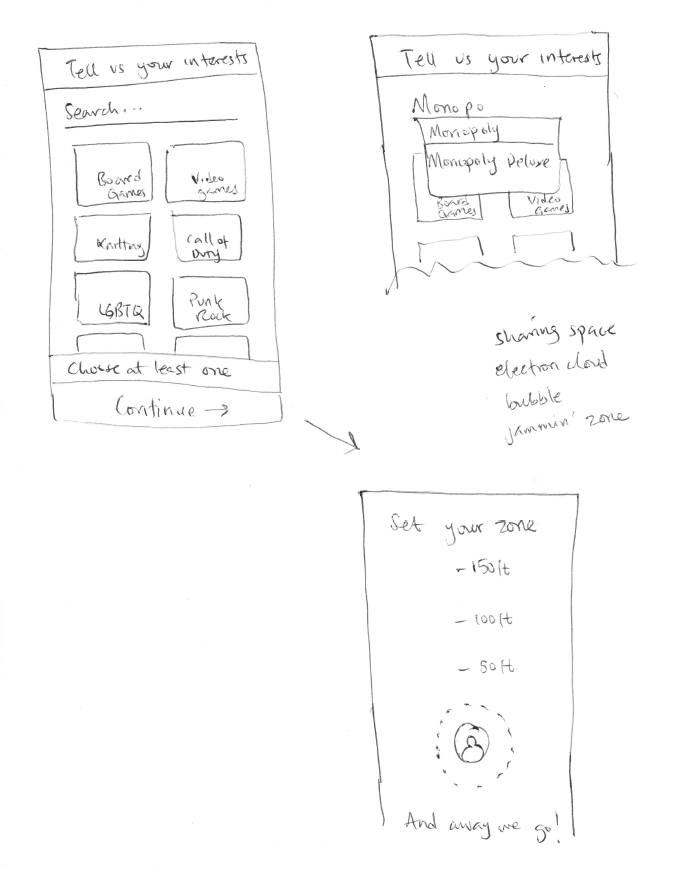 Tell us your interests
Search...
Board
Games
Video
games
Karting
Call of
Duty
LGBTQ
Punk
Rock
Choose at least one
Continue →
Tell us your interests
Monopo
Monopoly
Monopoly Deluxe
Board
Games
Video
Games
sharing space
electron cloud
bubble
jammin' zone
Set your zone
- 150ft
- 100ft
- 50ft
And away we go!